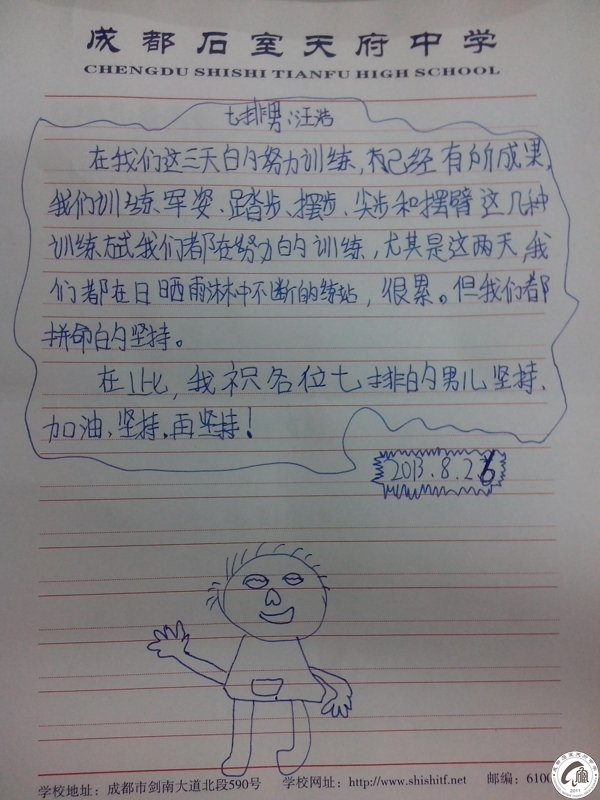 成都石室天府中学
CHENGDU SHISHI TIANFU HIGH SCHOOL
七排男:汪浩
在我们这三天的努力训练,有已经有所成果,
我们训练军姿、踏步、摆步、尖步和摆臂这几种
训练方式我们都在努力的训练,尤其是这两天,我
们都在日晒雨淋中不断的练站,很累。但我们都
拼命的坚持。
在此,我祝各位七排的男儿坚持、
加油、坚持,再坚持!
2013.8.26
学校地址:成都市剑南大道北段590号 学校网址:http://www.shishitf.net 邮编:6100
2011